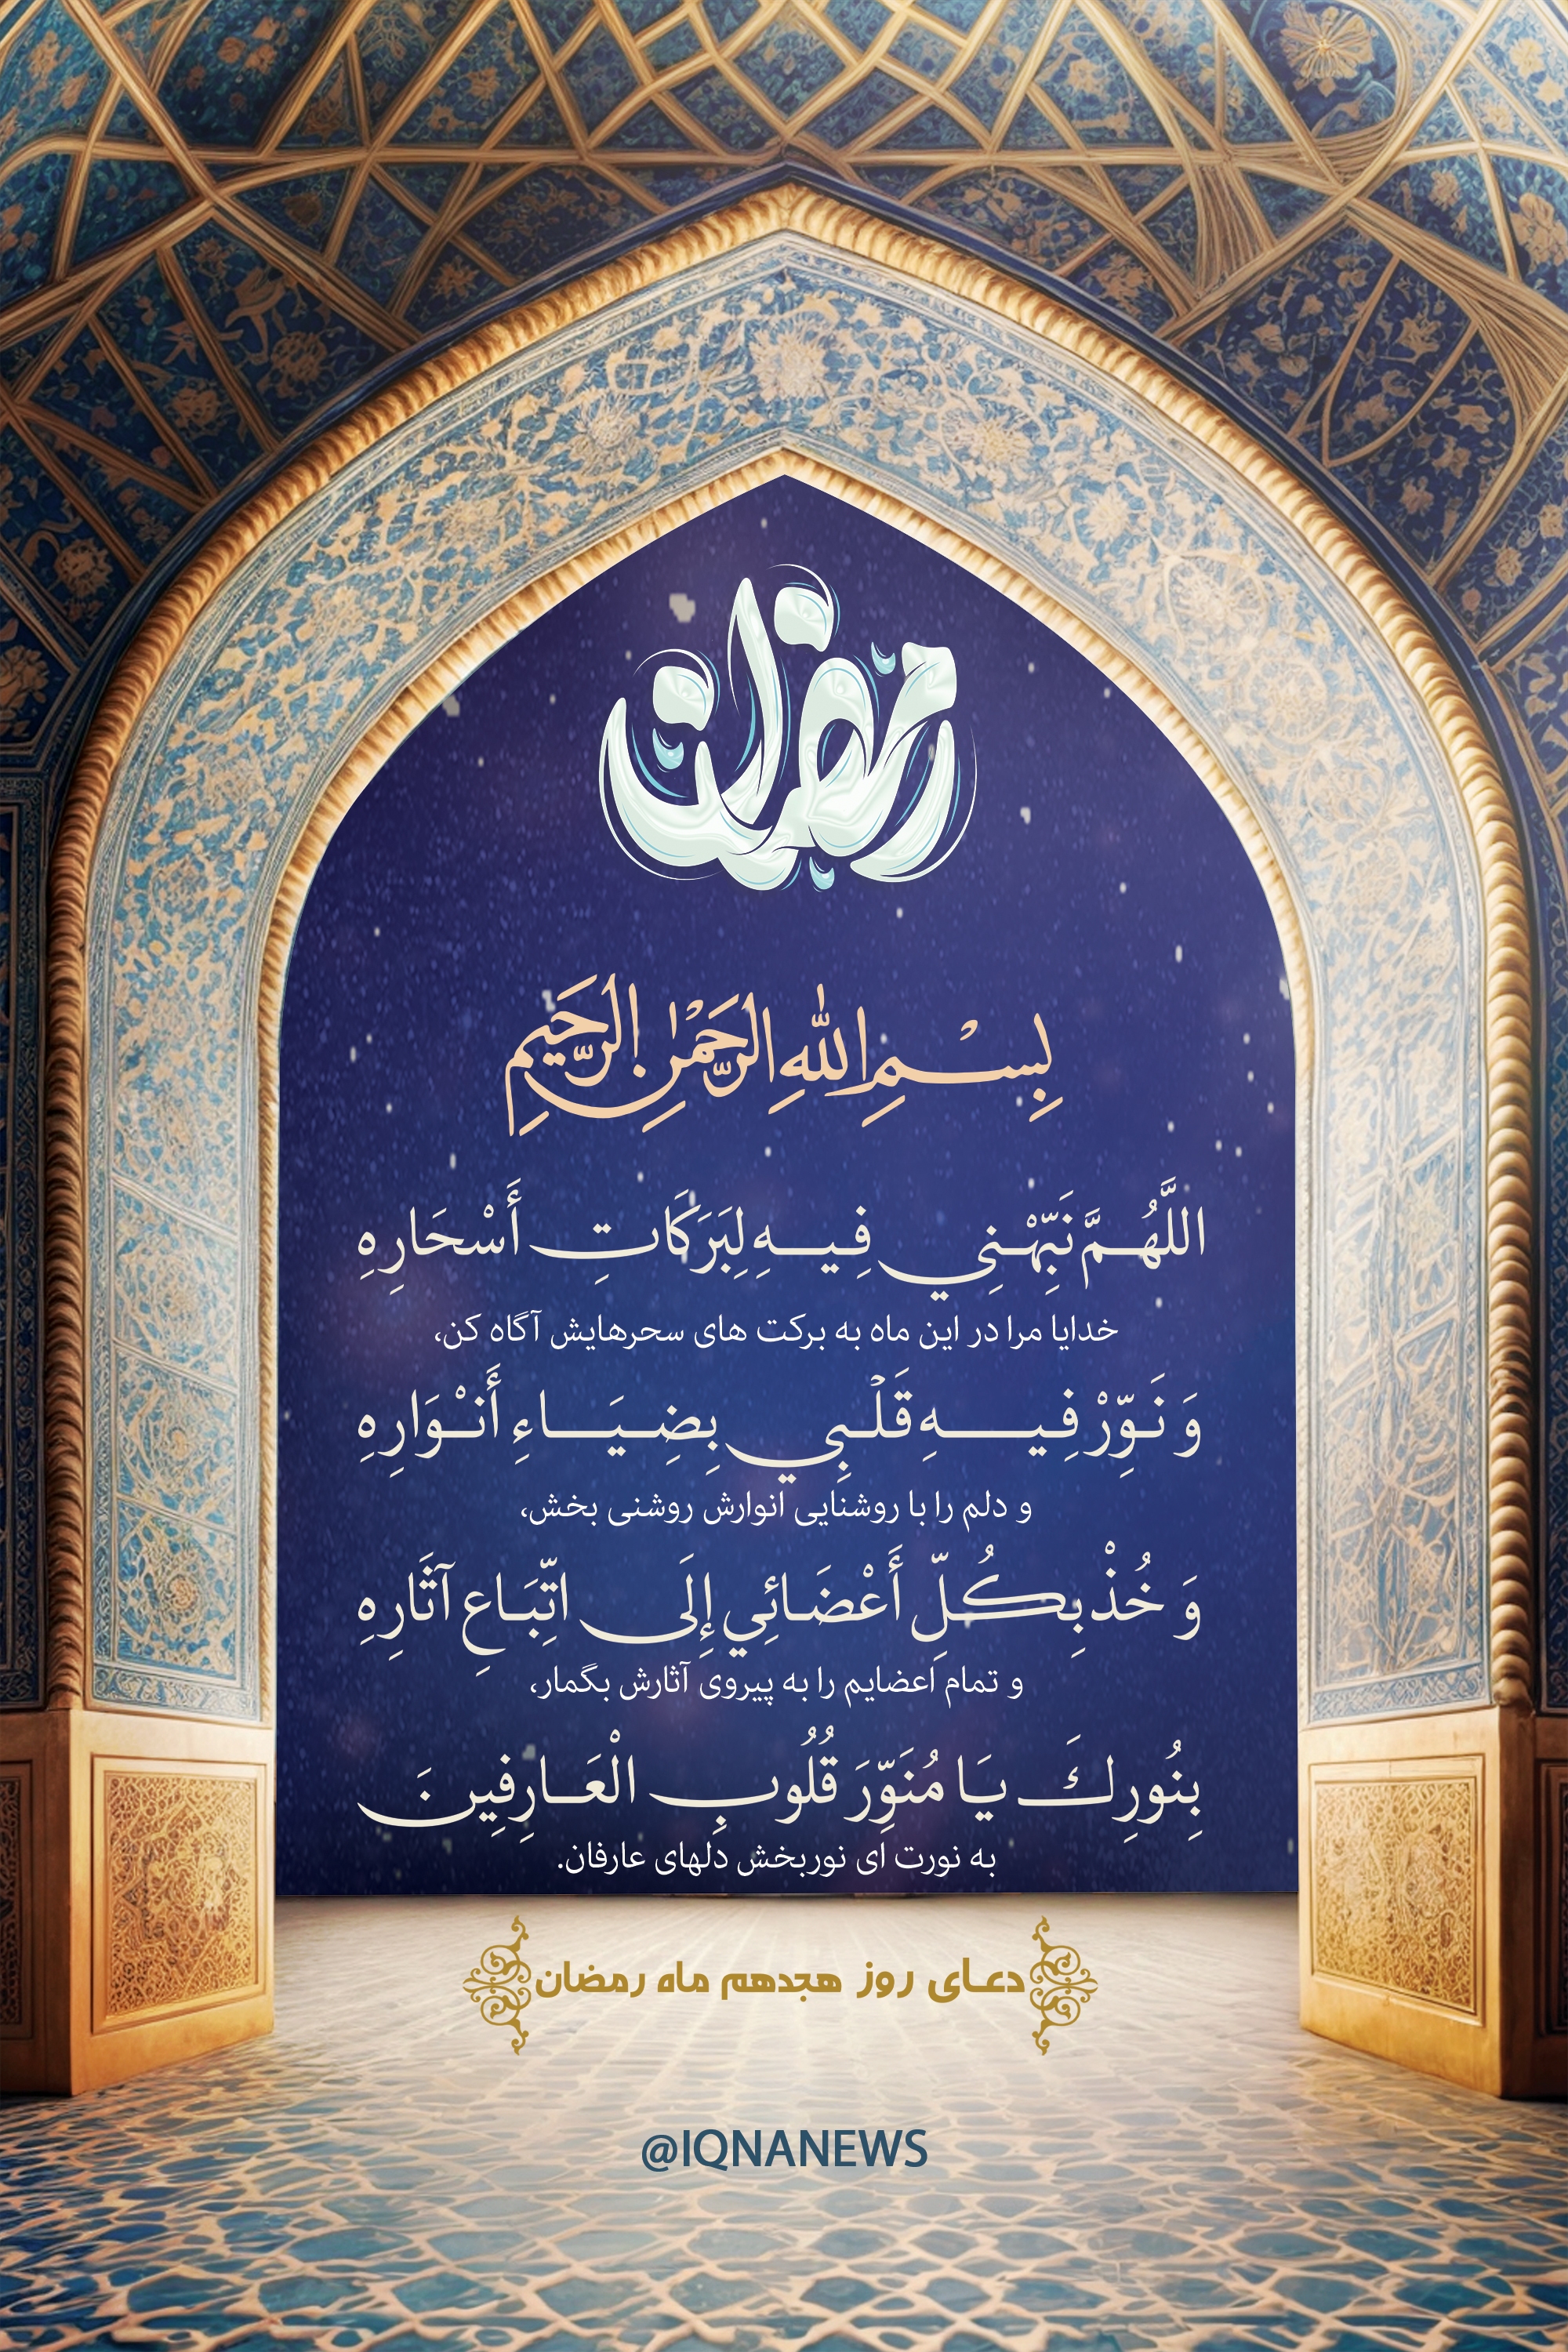 رمضان
بِسْمِ اللهِ الرَّحْمٰنِ الرَّحِيمِ
اللَّهُمَّ نَبِّهْنِي فِيهِ لِبَرَكَاتِ أَسْحَارِهِ
خدایا مرا در این ماه به برکت های سحرهایش آگاه کن،
وَ نَوِّرْ فِيهِ قَلْبِي بِضِيَاءِ أَنْوَارِهِ
و دلم را با روشنایی انوارش روشنی بخش،
وَ خُذْ بِكُلِّ أَعْضَائِي إِلَى اتِّبَاعِ آثَارِهِ
و تمام اعضایم را به پیروی آثارش بگمار،
بِنُورِكَ يَا مُنَوِّرَ قُلُوبِ الْعَارِفِينَ
به نورت ای نوربخش دلهای عارفان.
دعای روز هجدهم ماه رمضان
@IQNANEWS